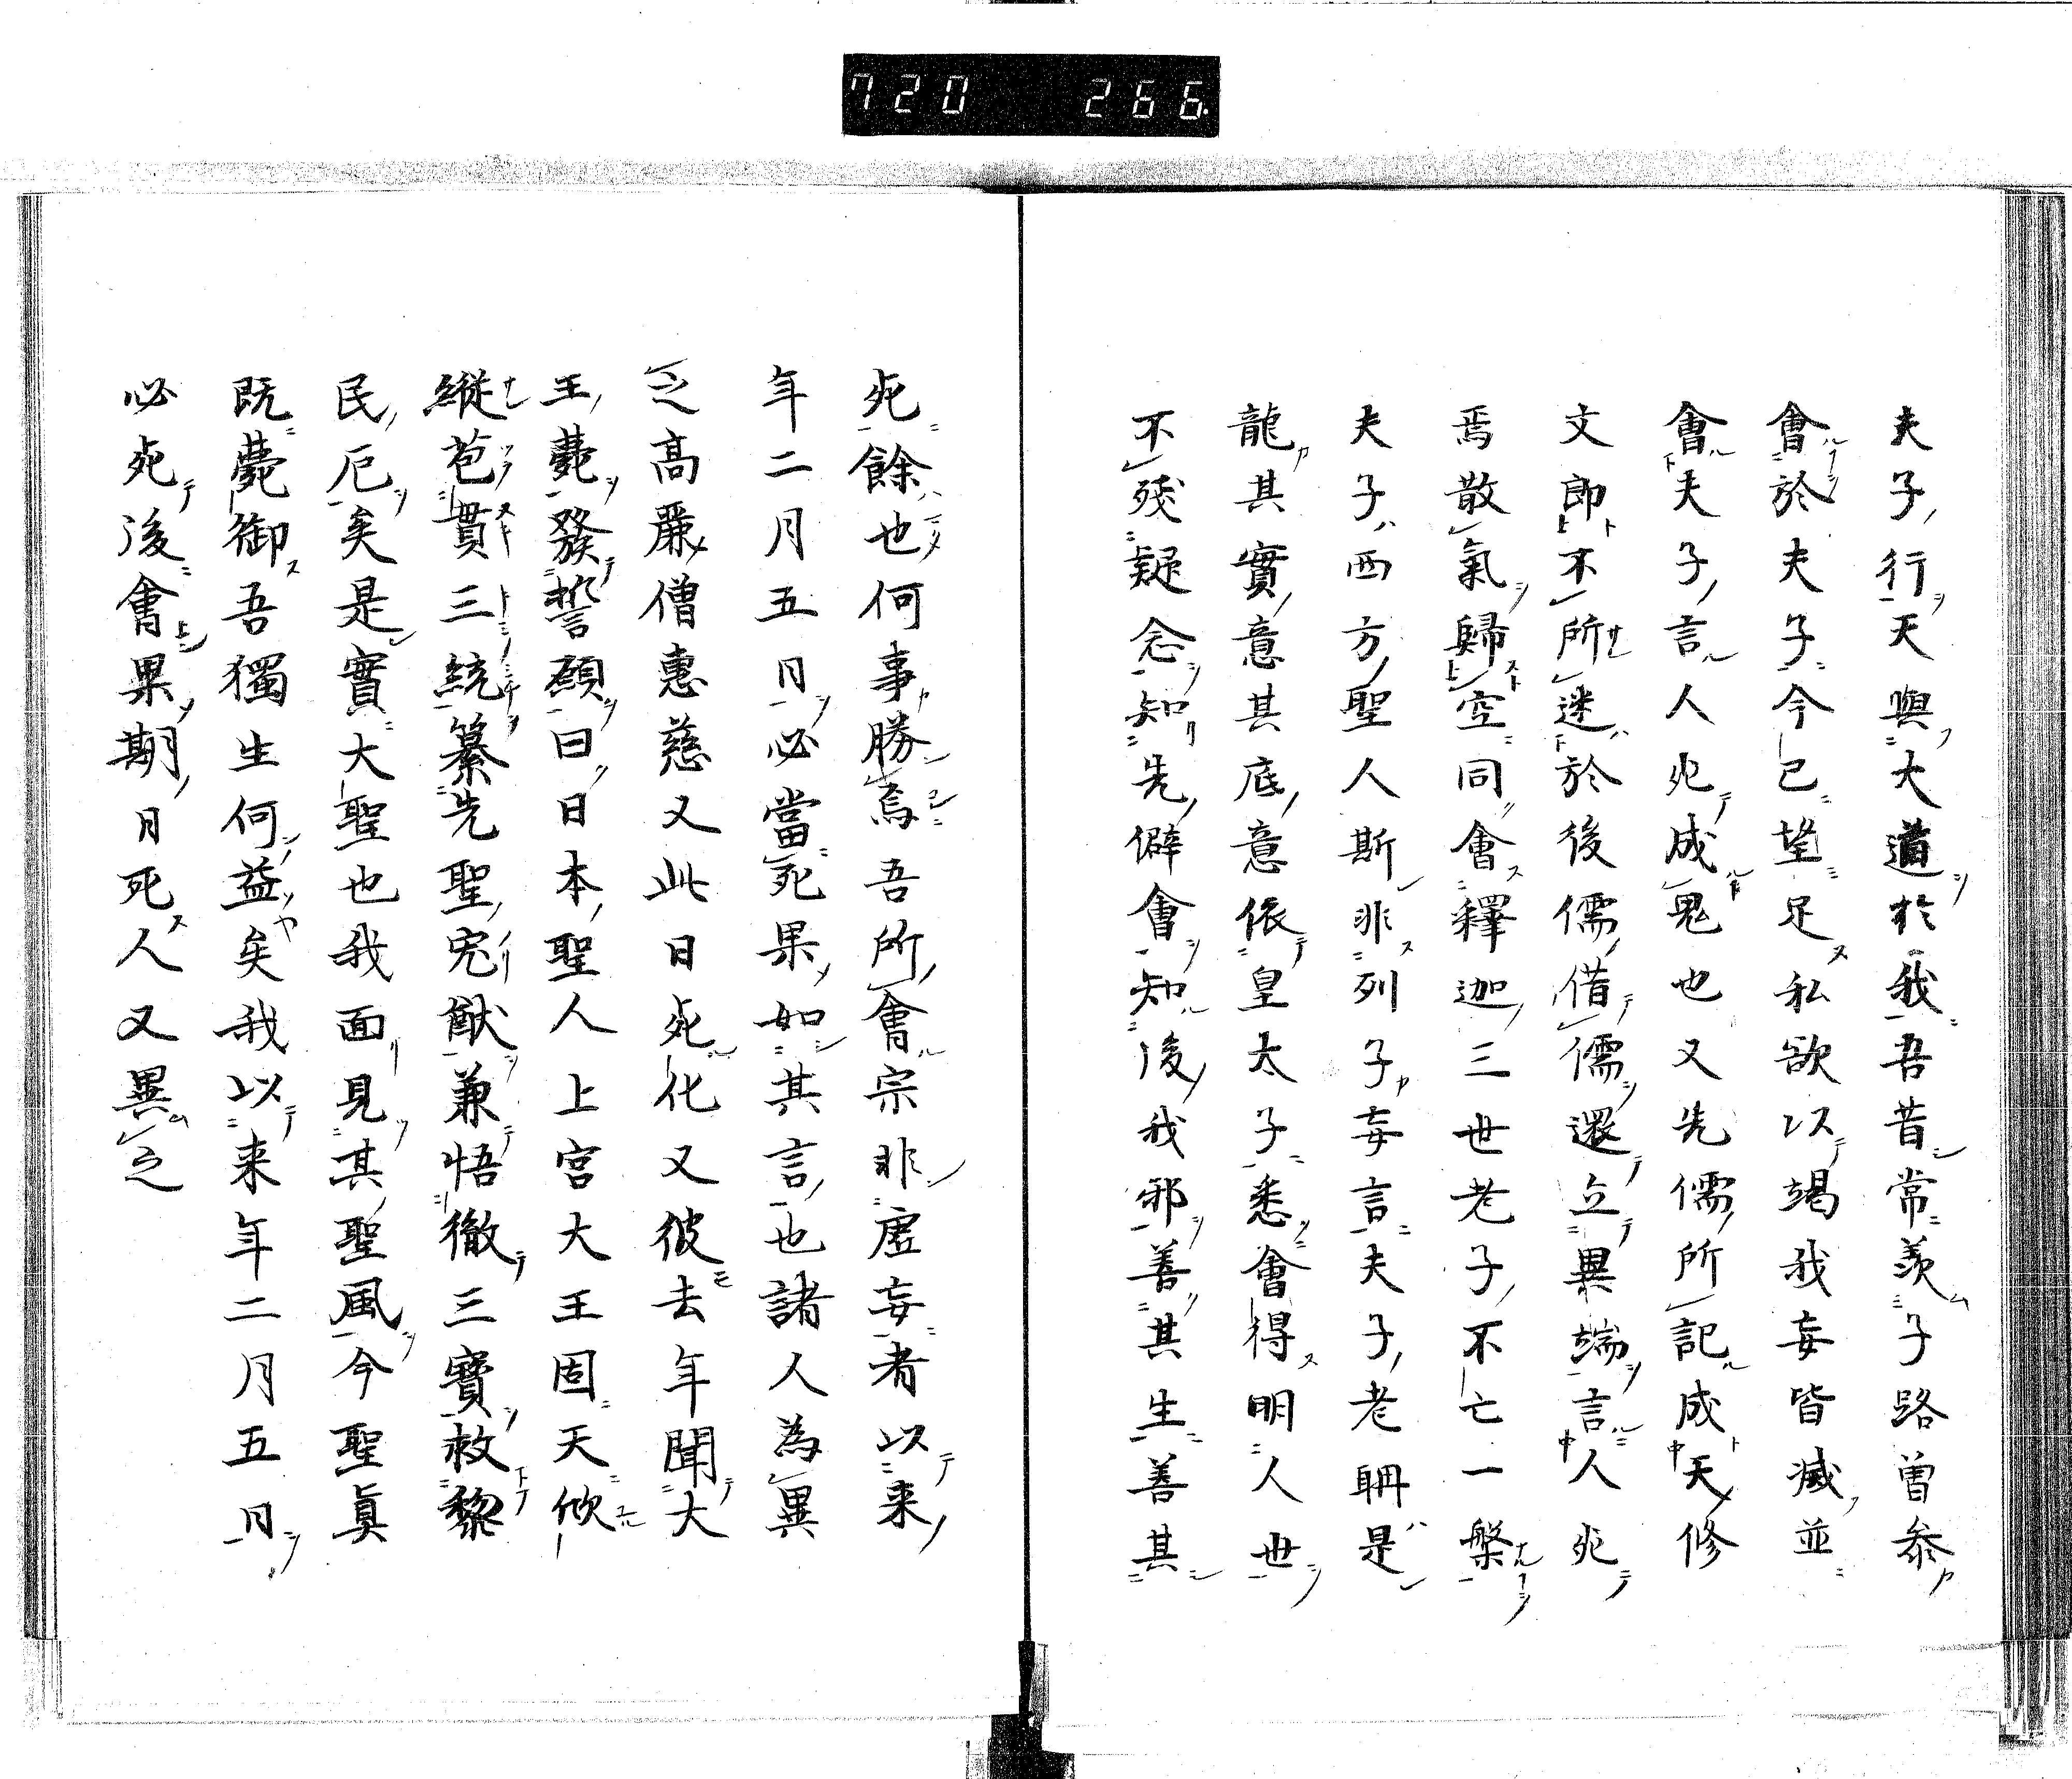 720 266
夫子行天與大道於我吾昔常羨子路曽参
會於夫子今已望足私欲以竭我妄皆滅並
會夫子言人死成鬼也又先儒所記成天修
文郎不所迷於後儒借儒還立異端言人死
焉散氣歸空同會釋迦三世老子不亡一槃
夫子西方聖人斯非列子妄言夫子老聃是
龍其實意其底意依皇太子悉會得明人世
不殘疑念知先僻會知後我邪善其生善其
死餘也何事勝焉吾所會宗非虚妄者以来
年二月五日必當死果如其言也諸人為異
之高麗僧惠慈又此日死化又彼去年聞大
王薨發誓願曰日本聖人上宮大王固天攸
縦苞貫三統纂先聖宄猷兼悟徹三寶救黎
民厄矣是實大聖也我面見其聖風今聖真
既薨御吾獨生何益矣我以来年二月五日
必死後會果期日死人又異之